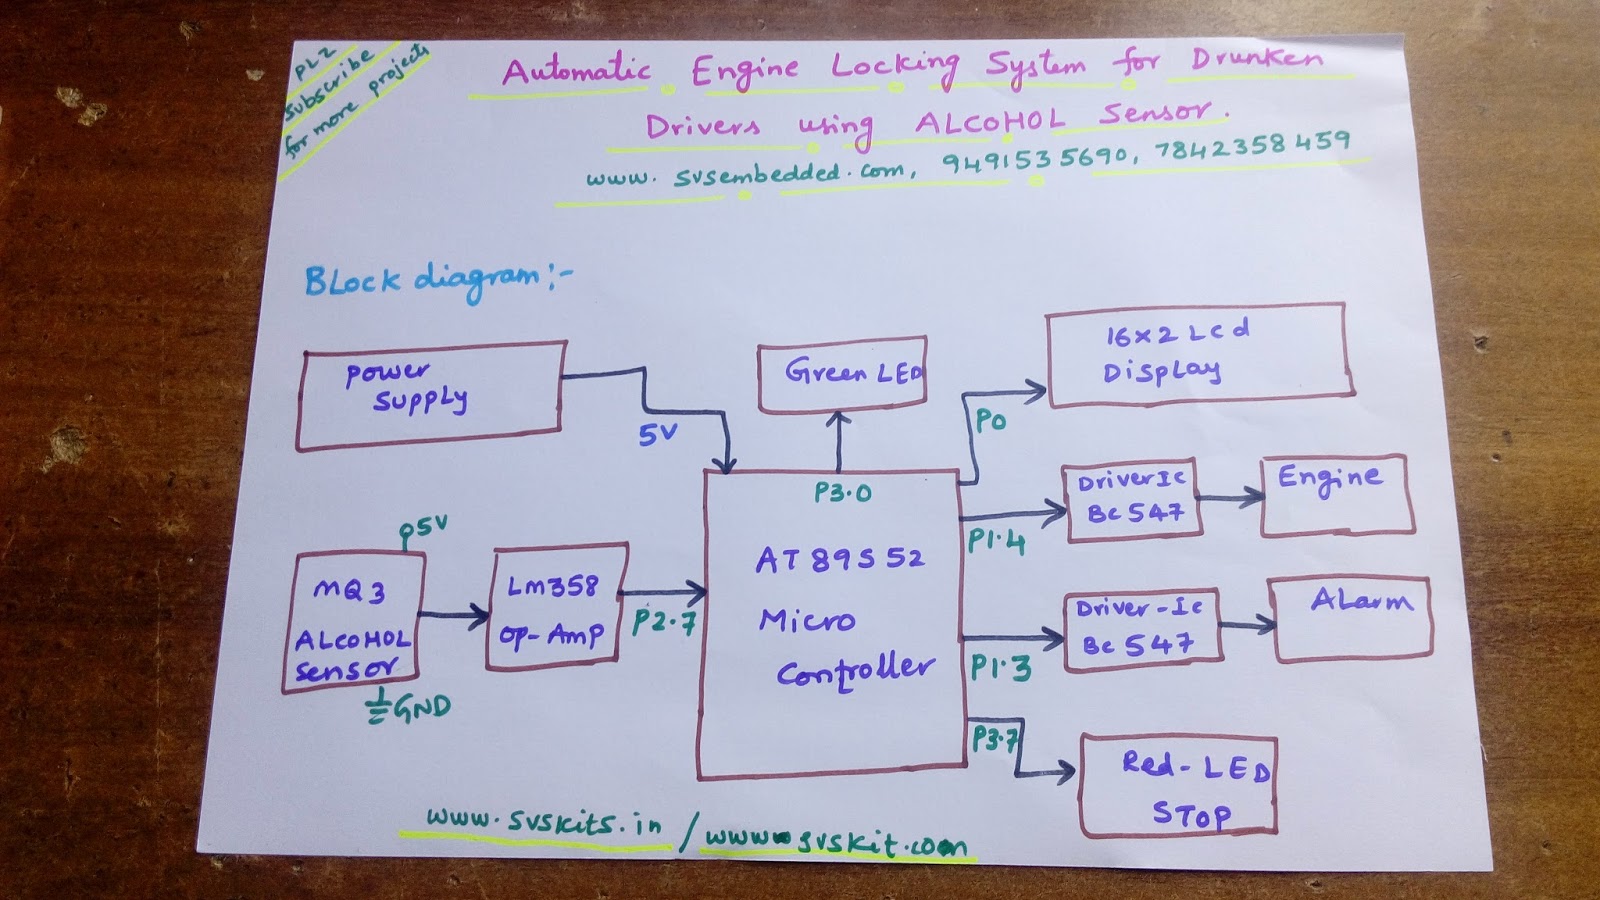 PLZ
Subscribe
for more projects
Automatic Engine Locking System for Drunken
Drivers using ALCOHOL Sensor.
www.svsembedded.com, 9491535690, 7842358459
Block diagram:-
Power
Supply
5V
Green LED
16x2 Lcd
Display
P0
P3.0
Driver Ic
Bc 547
Engine
P1.4
5V
MQ3
ALCOHOL
Sensor
GND
Lm358
Op-Amp
P2.7
AT89S52
Micro
Controller
Driver-Ic
Bc 547
ALarm
P1.3
P3.7
Red-LED
STOP
www.svskits.in / www.svskit.com